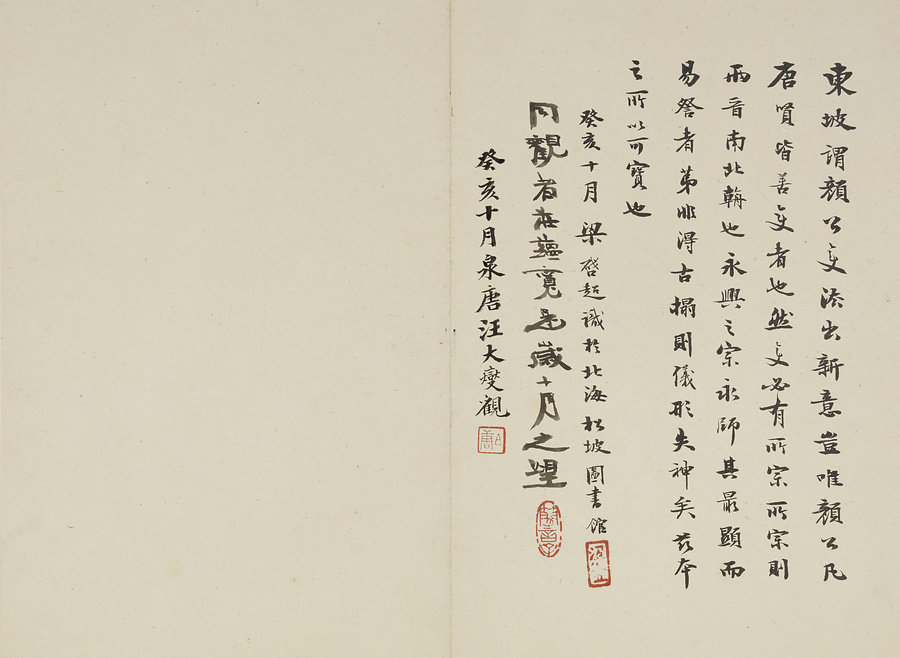 東坡謂顏公變法出新意豈唯顏公凡
唐賢皆善變者也然變必有所宗所宗則
兩晉南北朝也永興之宗永師其最顯而
易詧者第非得古搨則儀形失神矣茲本
之所以可寶也
癸亥十月梁啓超識於北海松坡圖書館
同觀者莊蘊寬是歲十月之望
癸亥十月泉唐汪大燮觀